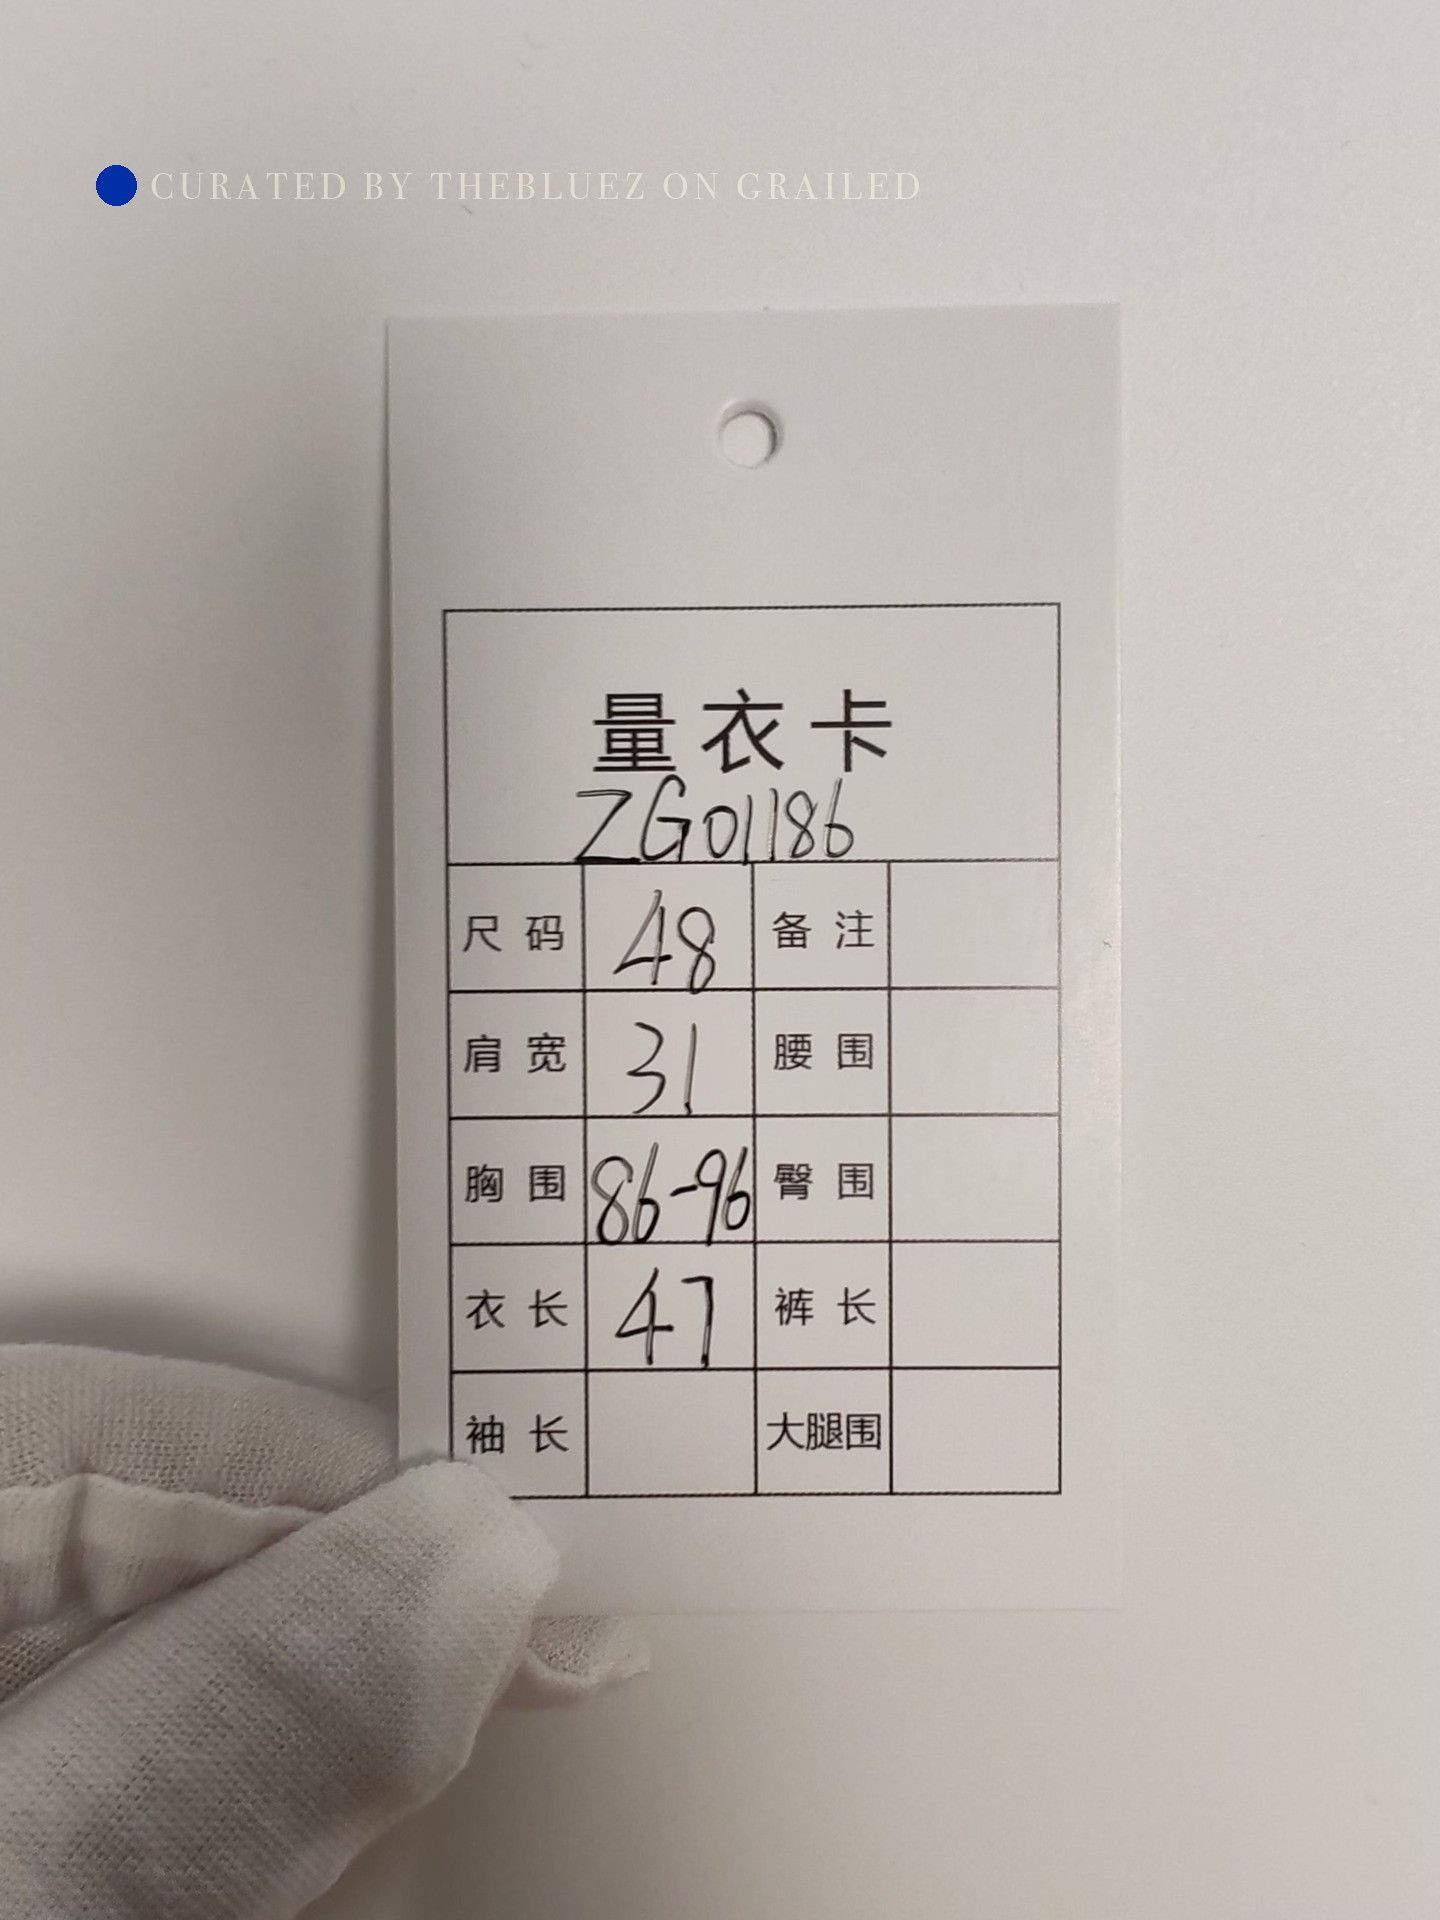 CURATED BY THEBLUEZ ON GRAILED
量衣卡
ZG01186
尺码 48 备注
肩宽 31 腰围
胸围 86-96 臀围
衣长 47 裤长
袖长 大腿围